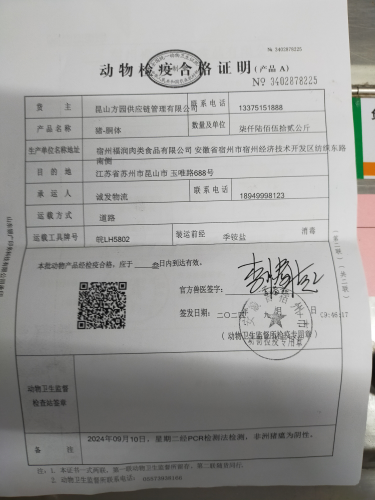 № 3402878225
动物检疫合格证明(产品 A)
№ 3402878225
货 主 昆山方园供应链管理有限公司 联系电话 13375151888
产品名称 猪-胴体 数量及单位 柒仟陆佰伍拾贰公斤
生产单位名称地址 宿州福润肉类食品有限公司 安徽省宿州市宿州经济技术开发区纺织东路南侧
目的地 江苏省苏州市昆山市 玉唯路688号
承运人 诚发物流 联系电话 18949998123
运载方式 道路
运载工具牌号 皖LH5802 装运前经 季铵盐 消毒
本批动物产品经检疫合格,应于 日内到达有效。
官方兽医签字:
签发日期: 二〇二四
(动物卫生监督所检疫专用章)
动物卫生监督
检查站签章
备 注 2024年09月10日,星期二经PCR检测法检测,非洲猪瘟为阴性。
注:1. 本证书一式两联,第一联动物卫生监督所留存,第二联随货同行。
2. 动物卫生监督所联系电话:
(第二联)(共二联)